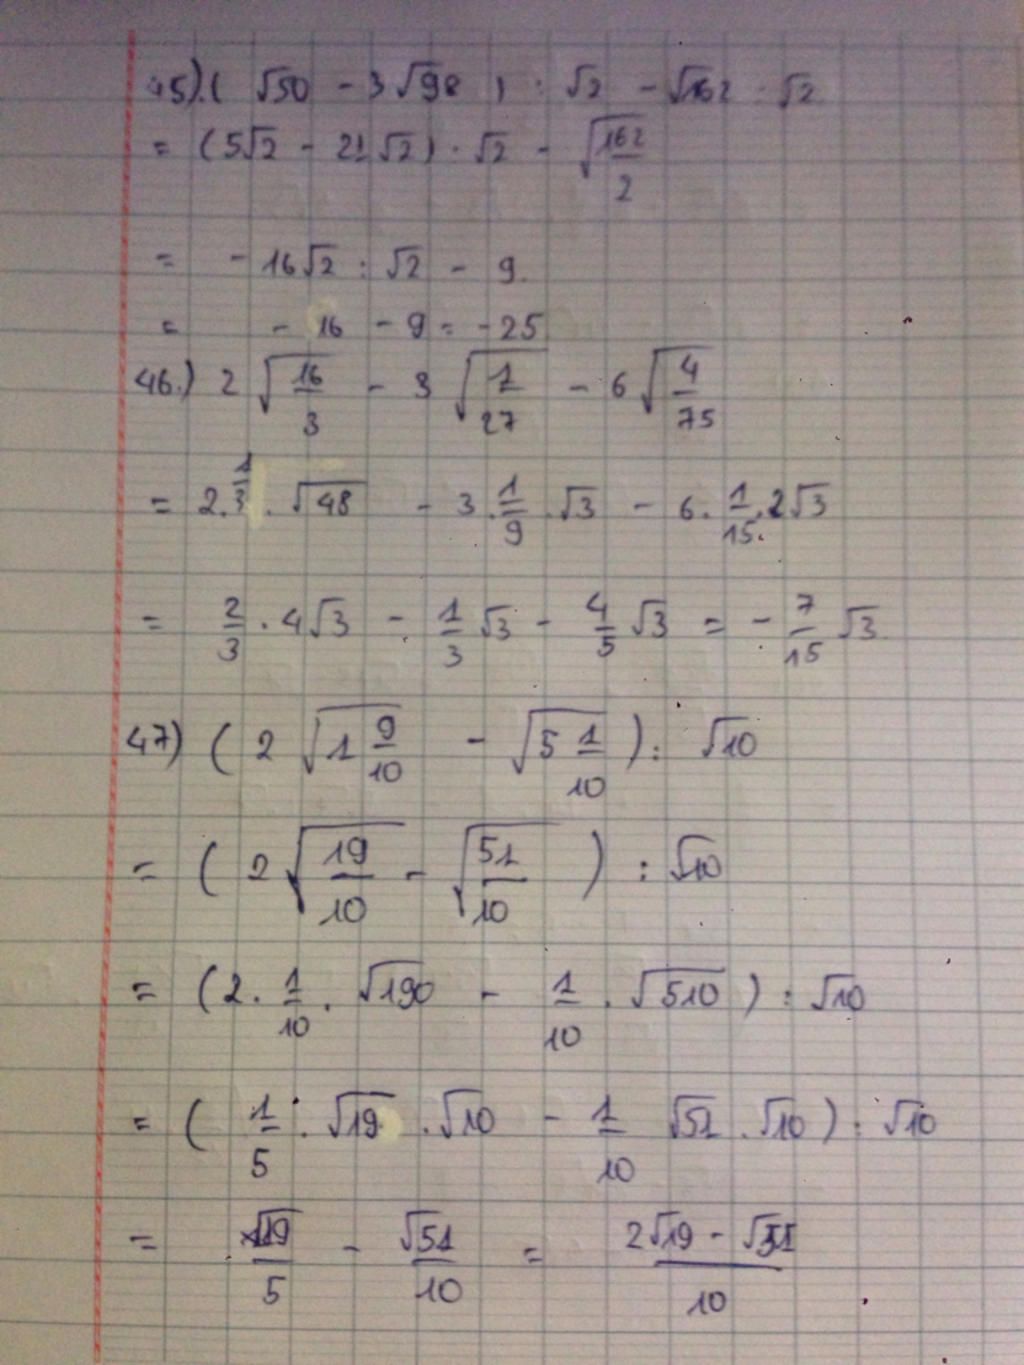 45).( √50 - 3√98 ) : √2 - √162 : √2
= (5√2 - 21√2) · √2 - √(162/2)
= - 16√2 : √2 - 9.
= - 16 - 9 = -25
46.) 2√(16/3) - 3√(1/27) - 6√(4/75)
= 2.1/3 . √48 - 3.1/9.√3 - 6.1/15.2√3
= 2/3 . 4√3 - 1/3 √3 - 4/5 √3 = - 7/15 √3
47) ( 2 √(1 9/10) - √(5 1/10) ) : √10
= ( 2√(19/10) - √(51/10) ) : √10
= (2. 1/10 . √190 - 1/10 . √510 ) : √10
= ( 1/5 . √19 . √10 - 1/10 √51 . √10 ) : √10
= √19/5 - √51/10 = (2√19 - √51)/10